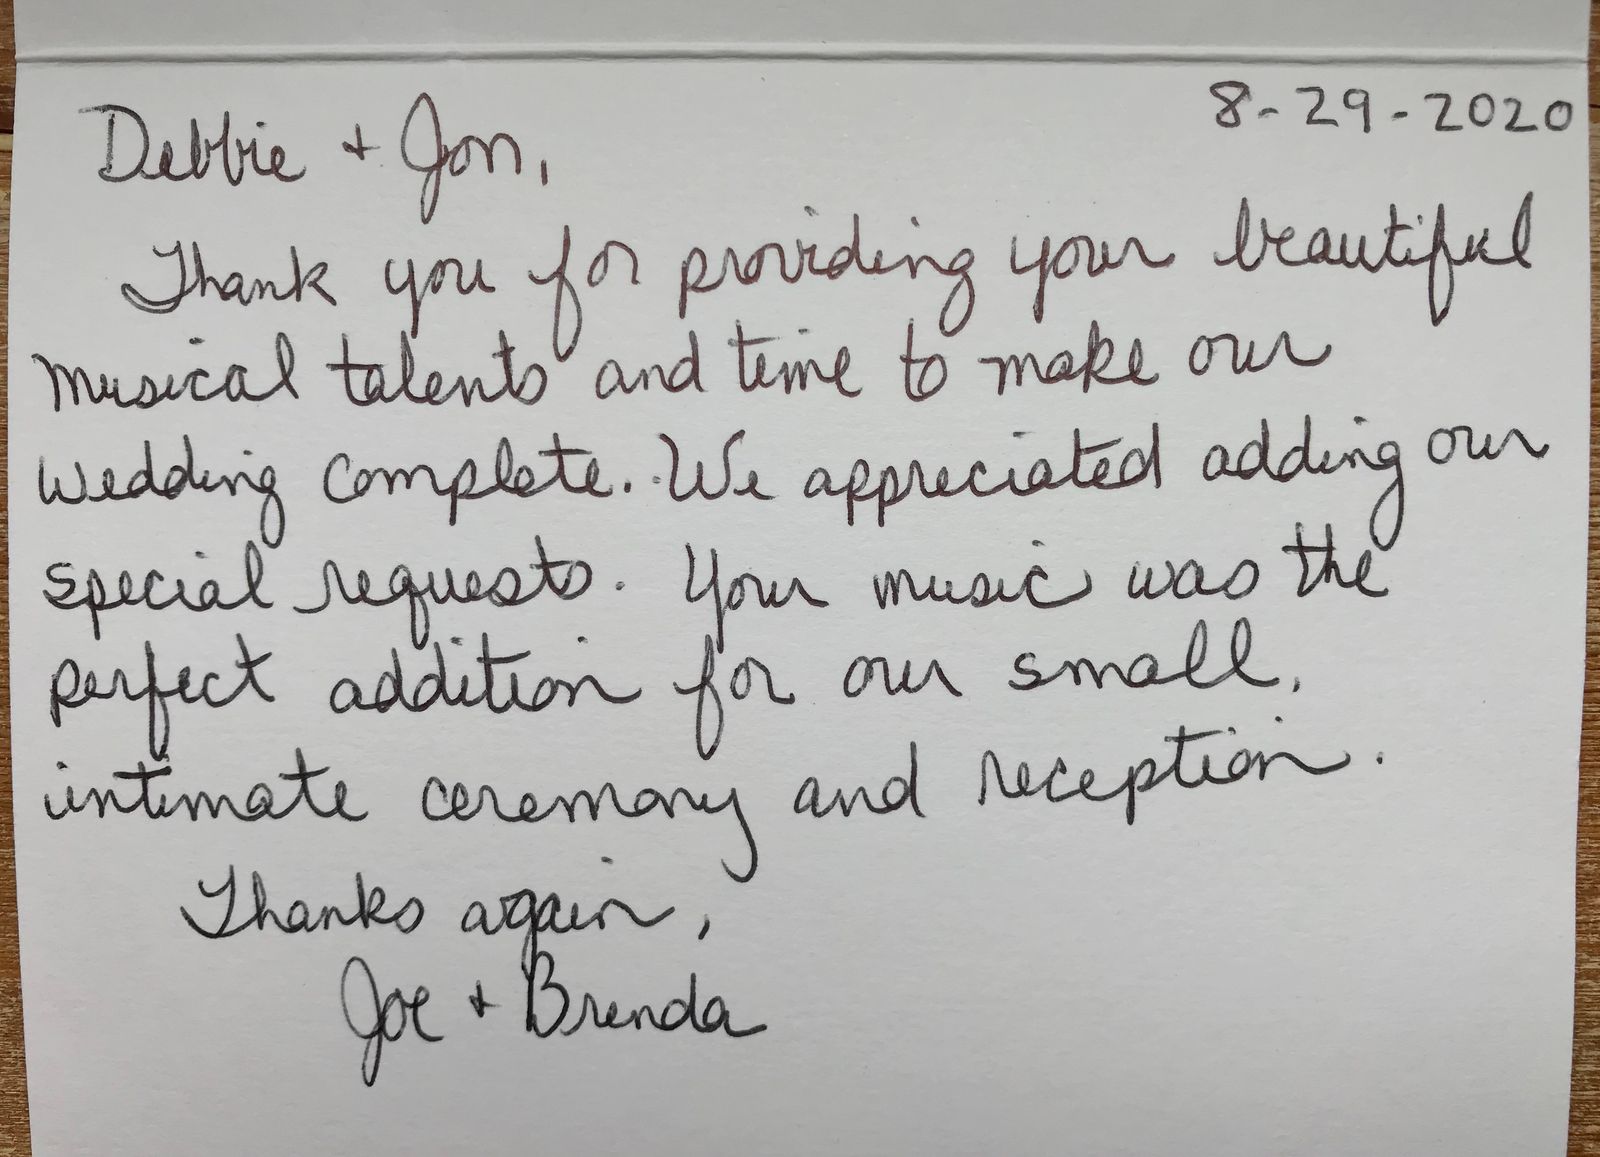 8-29-2020
Debbie + Jon,
Thank you for providing your beautiful
musical talents and time to make our
wedding complete. We appreciated adding our
special requests. Your music was the
perfect addition for our small,
intimate ceremony and reception.
Thanks again,
Joe + Brenda